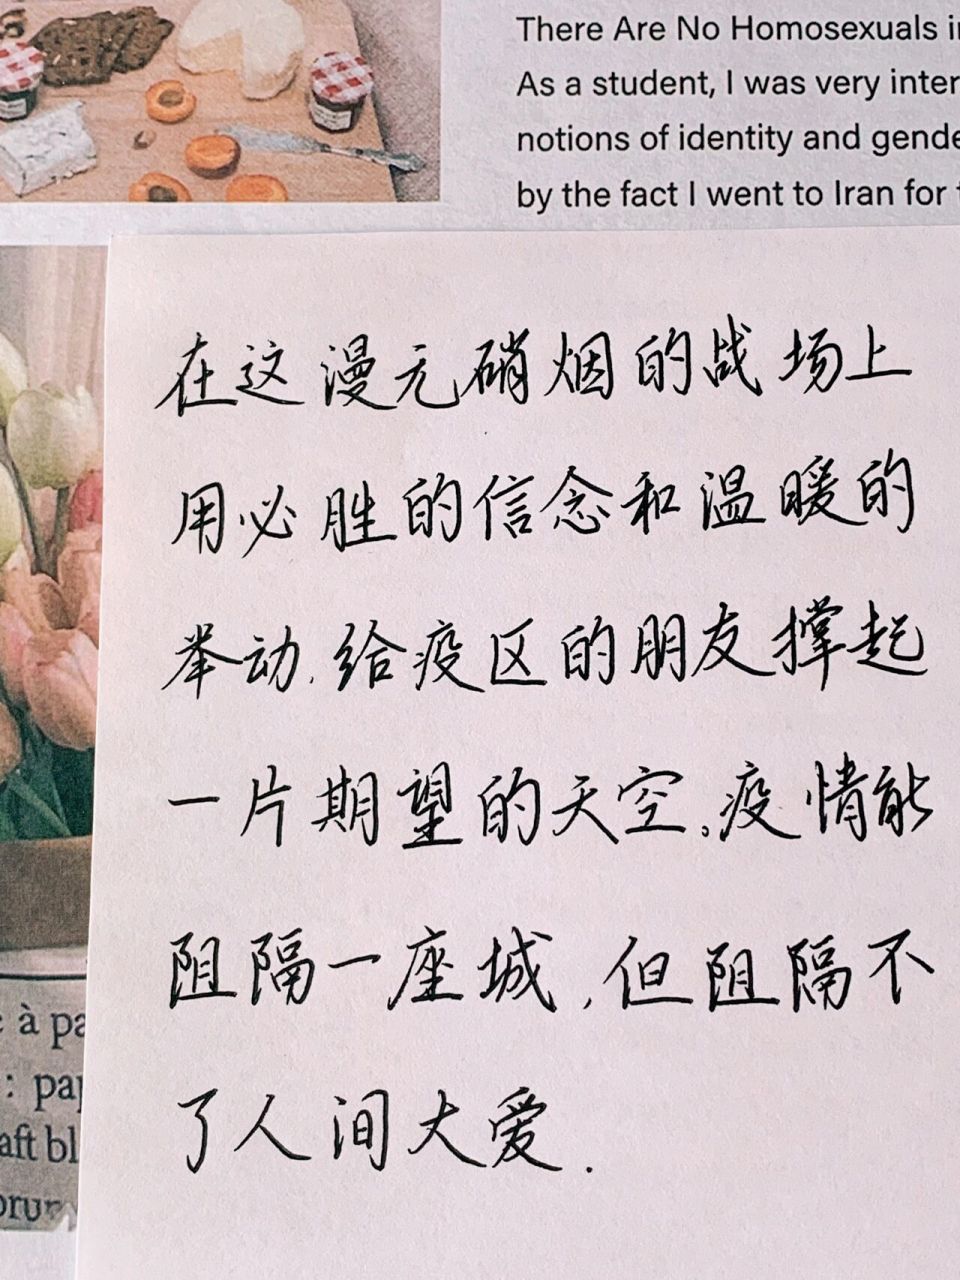 There Are No Homosexuals
As a student, I was very
notions of identity and
by the fact I went to Iran for
在这漫无硝烟的战场上
用必胜的信念和温暖的
举动,给疫区的朋友撑起
一片期望的天空。疫情能
阻隔一座城,但阻隔不
了人间大爱.
à
: